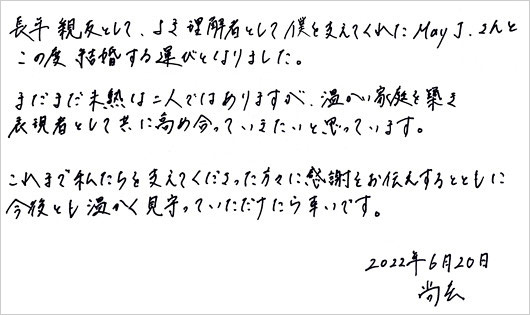 長年 親友として、よき理解者として僕を支えてくれた May J.さんと
この度 結婚する運びとなりました。
まだまだ未熟な二人ではありますが、温かい家庭を築き
表現者として共に高め合っていきたいと思っています。
これまで私たちを支えてくださった方々に感謝をお伝えするとともに
今後とも温かく見守っていただけたら幸いです。
2022年6月20日
尚玄